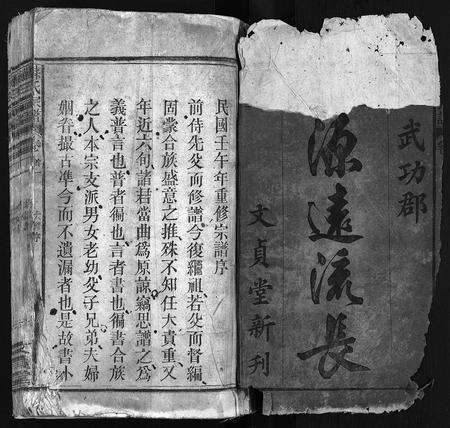 武功郡
源遠流長
文貞堂新刊
民國壬午年重修宗譜序
前侍先父而修譜今復繼祖若父而督編
固蒙合族盛意之推殊不知任大責重又
年近六旬諸君當曲為原諒竊思譜之為
義普言也普者徧也言者書也徧書合族
之人本宗支派男女老幼父子兄弟夫婦
撮古準今而不遺漏者也是故書小